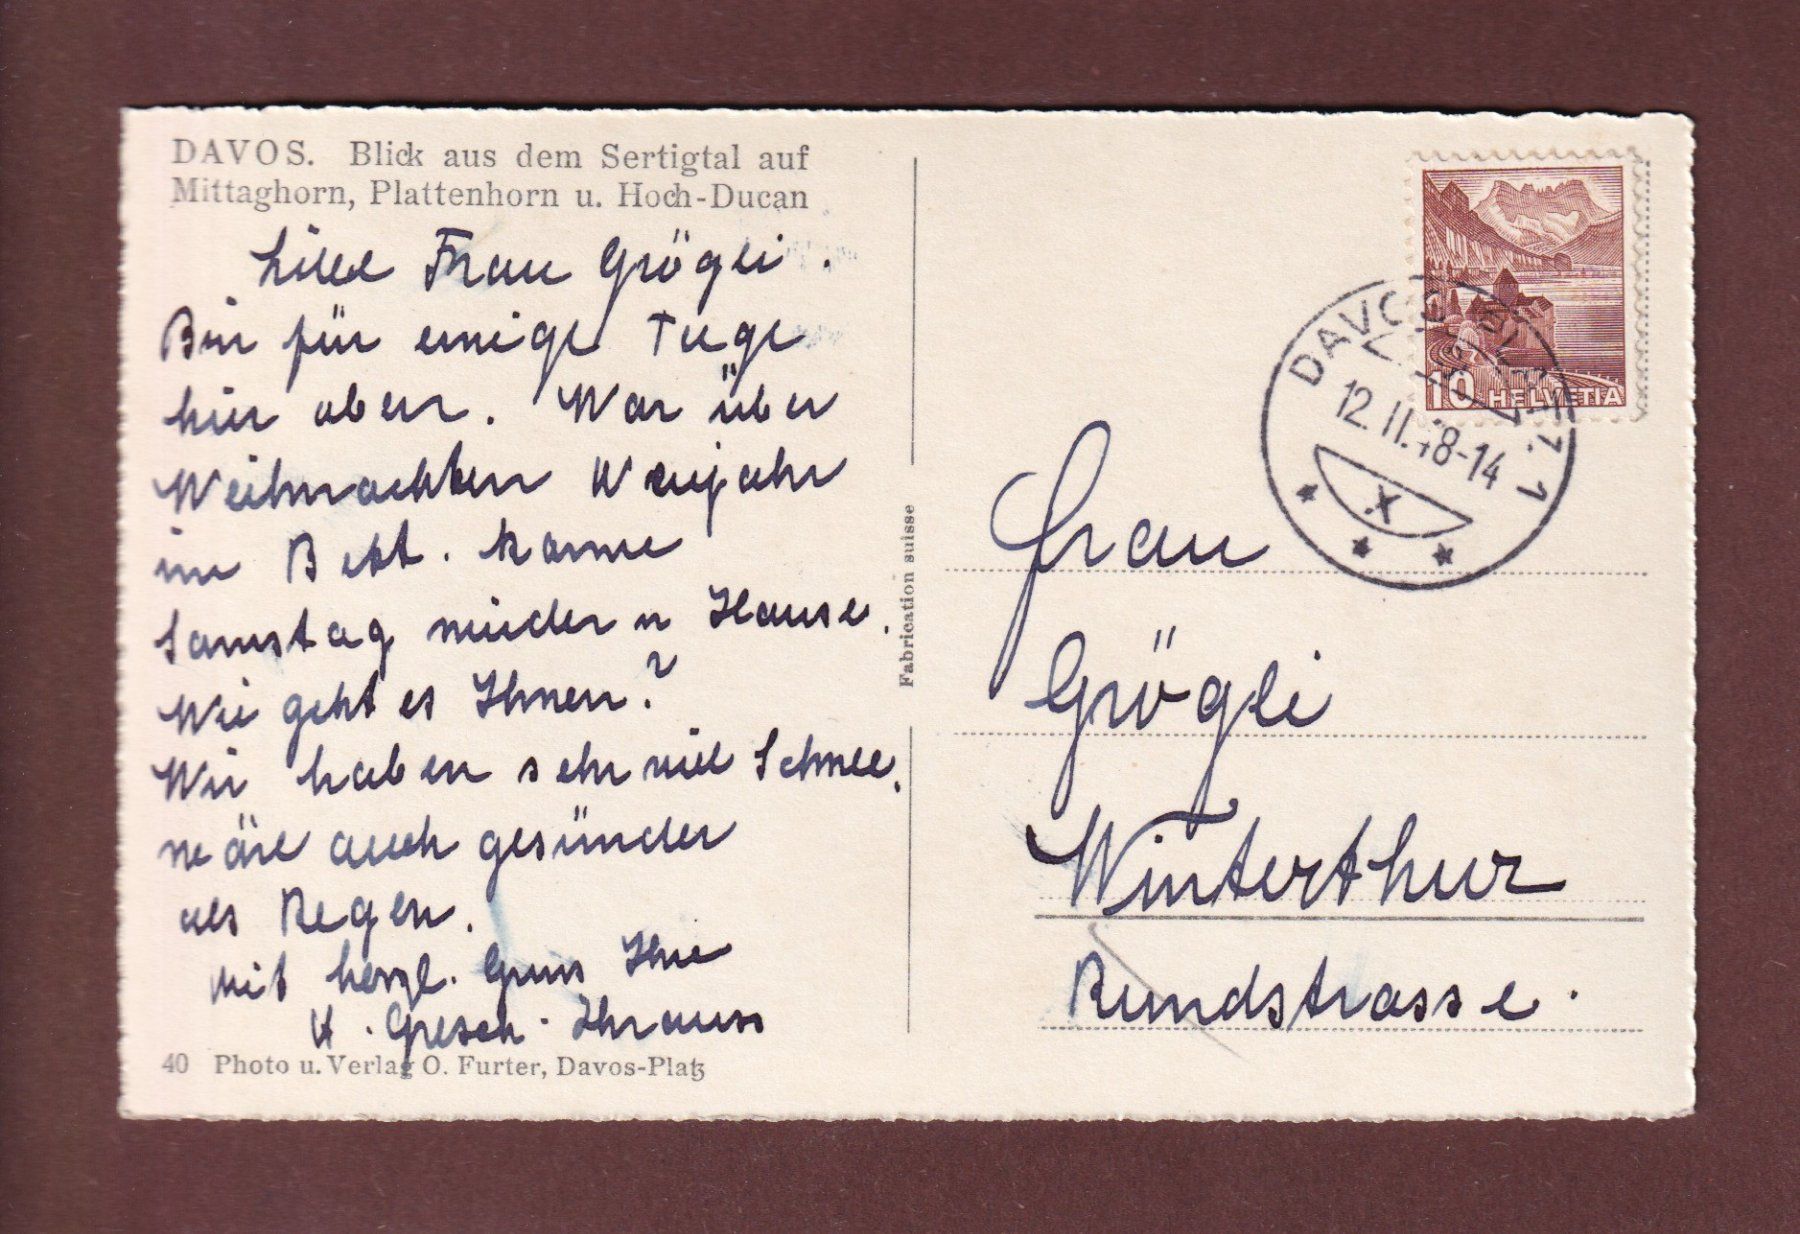 DAVOS. Blick aus dem Sertigtal auf
Mittaghorn, Plattenhorn u. Hoch-Ducan
Liebe Frau Grögli.
Bin für einige Tage
hier oben. War über
Weihnachten Neujahr
im Bett. Komme
Samstag wieder n Hause.
Wie geht es Ihnen?
Wir haben sehr viel Schnee,
wäre auch gesünder
als Regen.
Mit herzl. Gruss Ihre
Fabrication suisse
40 Photo u. Verlag O. Furter, Davos-Platz
HELVETIA
10
DAVOS
12.II.48-14
X
Frau
Grögli
Winterthur
Rundstrasse.